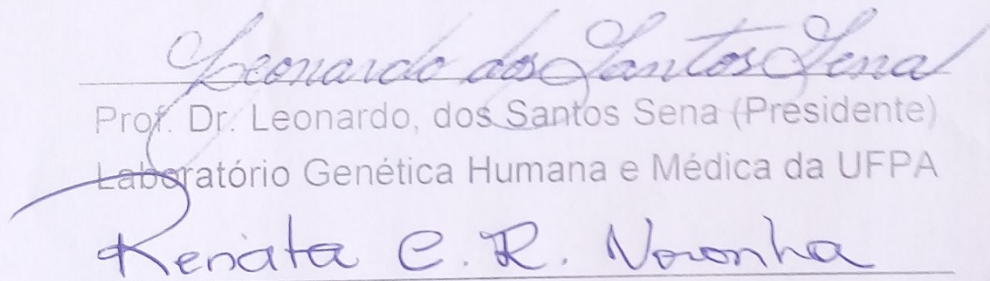 Leonardo dos Santos Sena
Prof. Dr. Leonardo, dos Santos Sena (Presidente)
Laboratório Genética Humana e Médica da UFPA
Renata C. R. Noronha